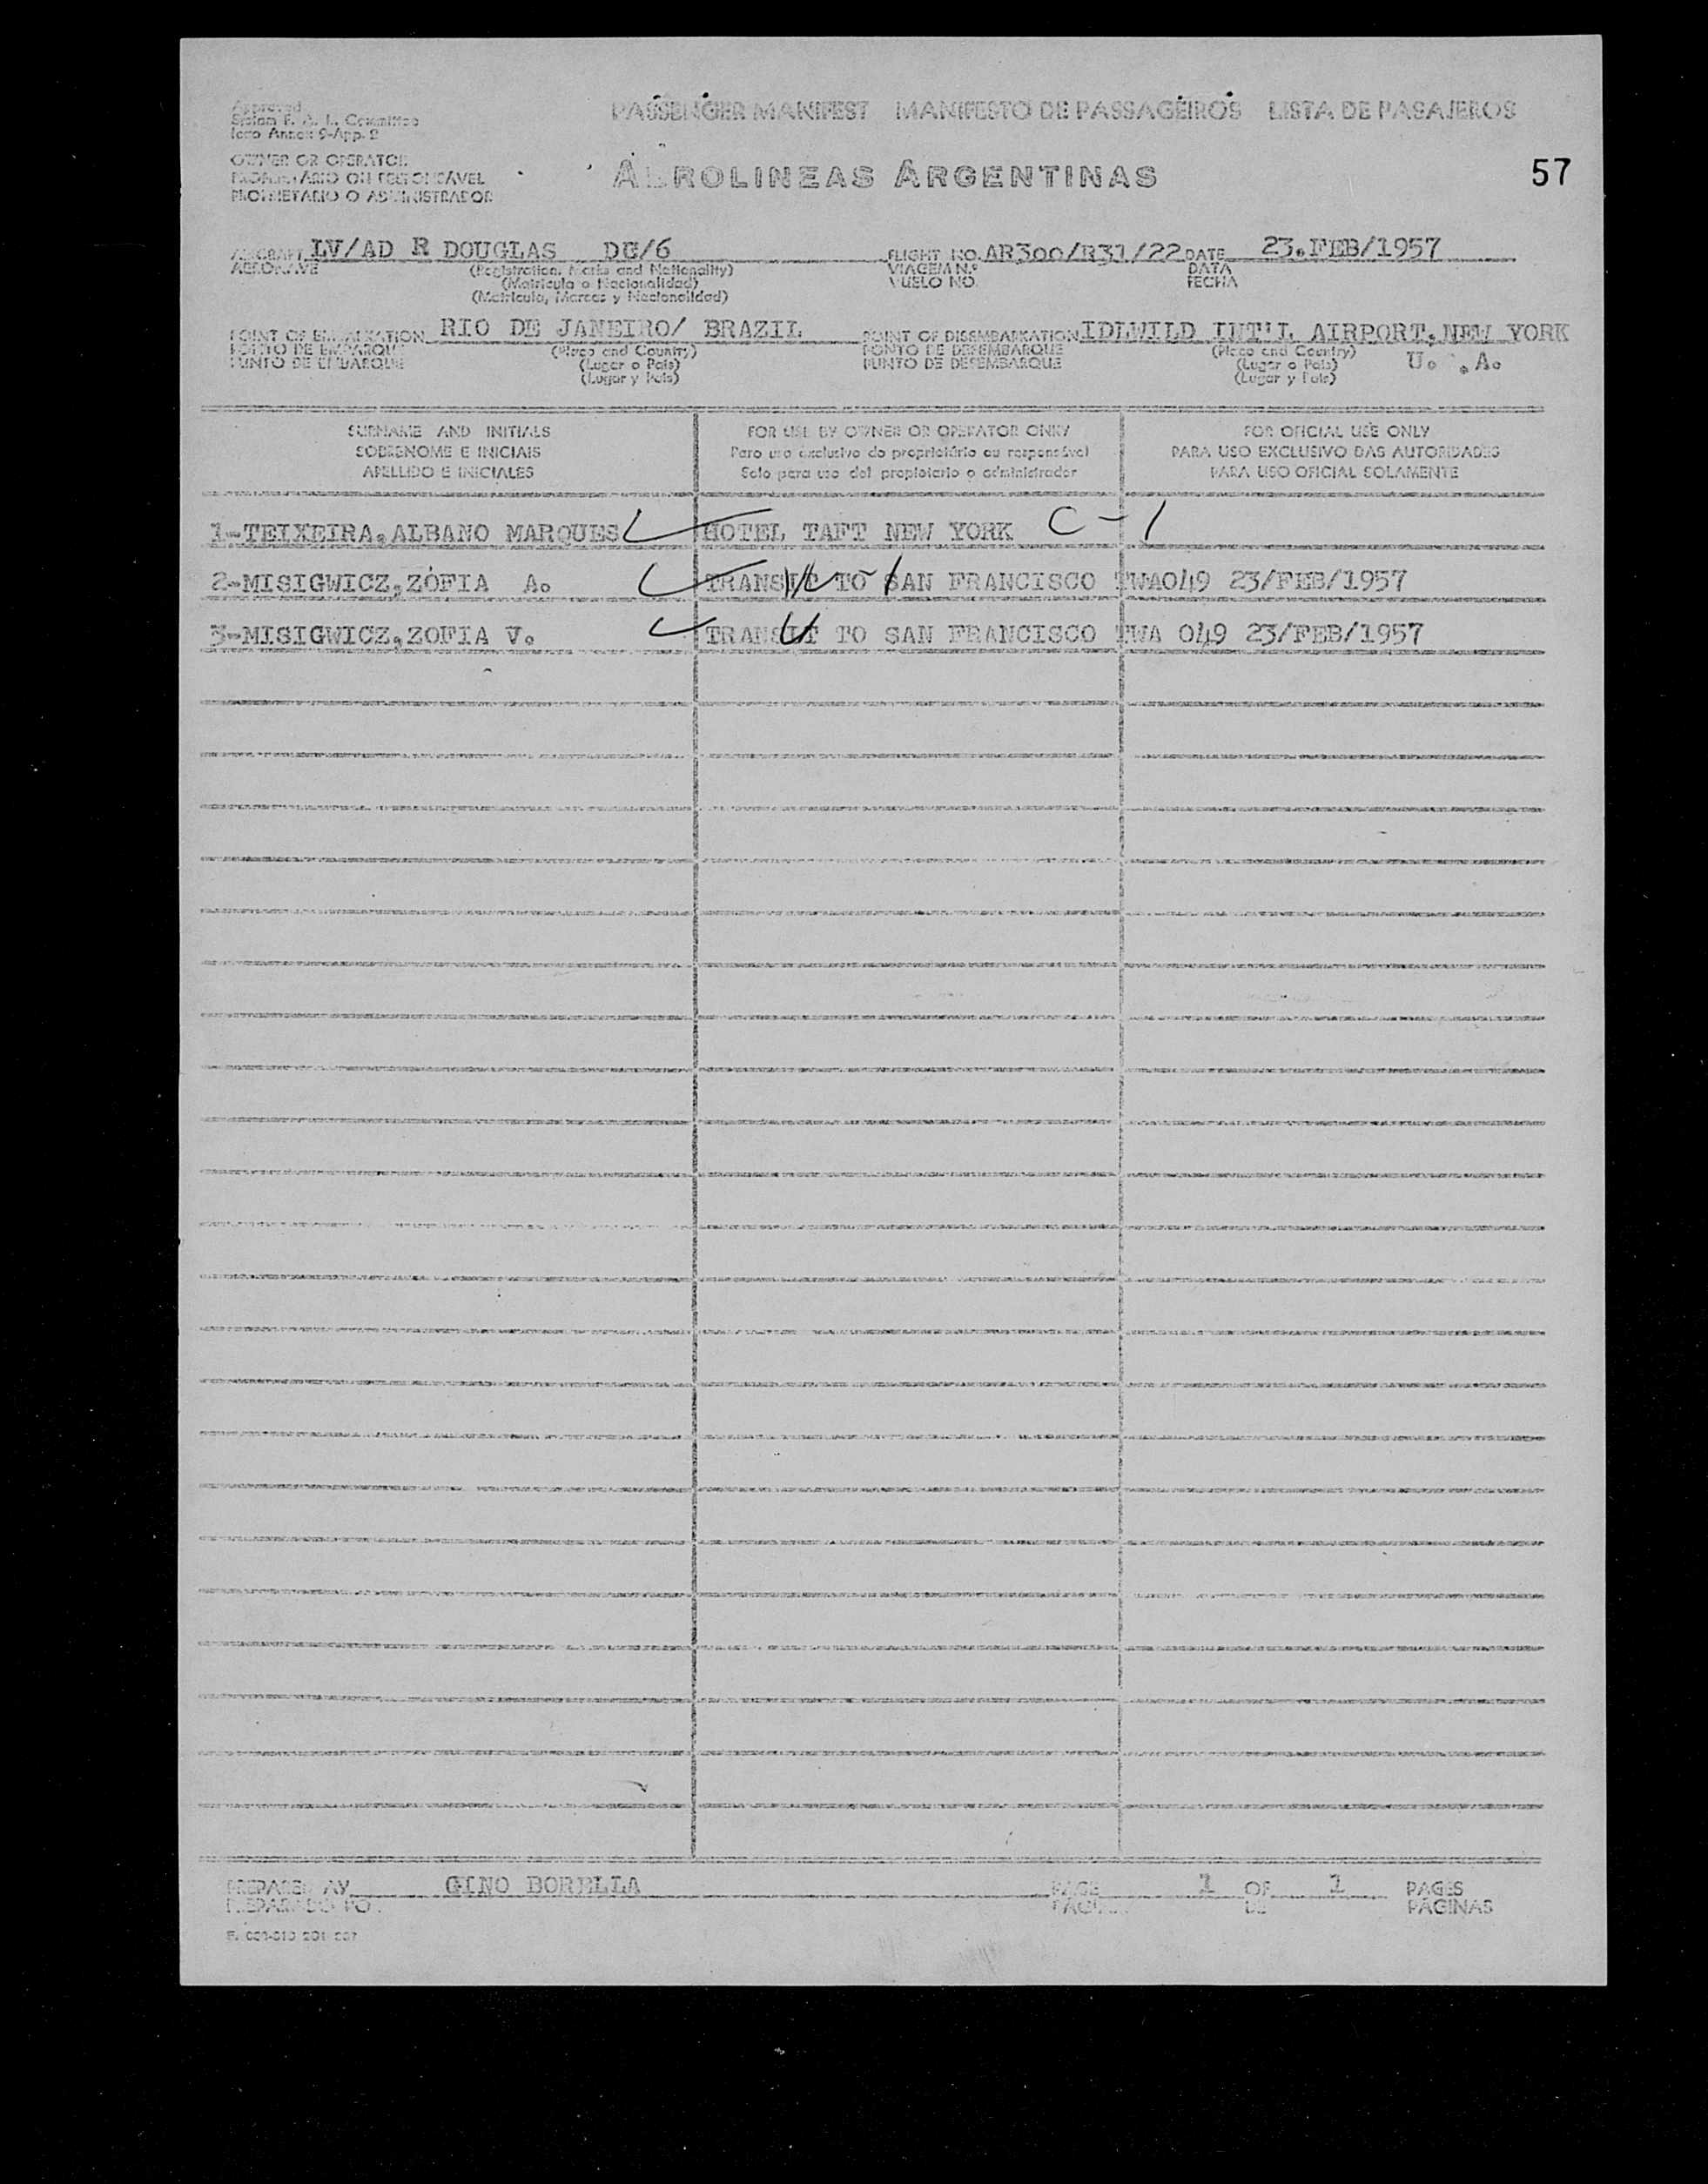 Approved
PASSENGER MANIFEST MANIFESTO DE PASSAGEIROS LISTA DE PASAJEROS
Icao Annex 9-App. 2
OWNER OR OPERATOR
AEROLINEAS ARGENTINAS 57
PROPIETARIO O ADMINISTRADOR
AIRCRAFT LV/AD R DOUGLAS DC/6 FLIGHT NO. AR300/R31/22 DATE 23.FEB/1957
AERONAVE (Registration, Marks and Nationality) VIAGEM N.º DATA
(Matrícula o Nacionalidad) VUELO NO. FECHA
(Matrícula, Marcas y Nacionalidad)
POINT OF EMBARKATION RIO DE JANEIRO/ BRAZIL POINT OF DISEMBARKATION IDLWILD INT'L AIRPORT, NEW YORK
PONTO DE EMBARQUE (Place and Country) PONTO DE DESEMBARQUE (Place and Country) U. .A.
PUNTO DE EMBARQUE (Lugar o Pais) PUNTO DE DESEMBARQUE (Lugar o Pais)
(Lugar y Pais) (Lugar y Pais)
SURNAME AND INITIALS FOR USE BY OWNER OR OPERATOR ONLY FOR OFICIAL USE ONLY
SOBRENOME E INICIAIS Para uso exclusivo do proprietário ou responsável PARA USO EXCLUSIVO DAS AUTORIDADES
APELLIDO E INICIALES Solo para uso del propietario o administrador PARA USO OFICIAL SOLAMENTE
1-TEIXEIRA,ALBANO MARQUES HOTEL TAFT NEW YORK C-1
2-MISIGWICZ,ZOFIA A. TRANSIT TO SAN FRANCISCO TWA049 23/FEB/1957
3-MISIGWICZ,ZOFIA V. TRANSIT TO SAN FRANCISCO TWA 049 23/FEB/1957
PREPARED AY GINO BORELLA PAGE 1 OF 1 PAGES
PREPARADO POR DE PAGINAS